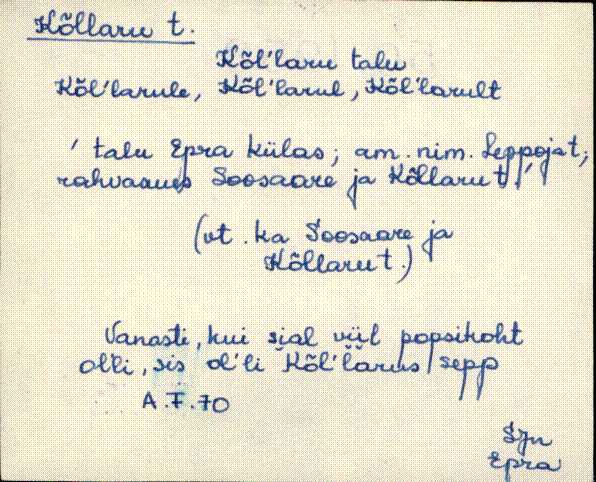 Kõllaru t.
Kõl'laru talu
Kõl'larule, Kõl'larul, Kõl'larult
' talu Epra külas; am. nim. Seppojat;
rahvasuus Soosaare ja Kõllaru t.'
(vt. ka Soosaare ja
Kõllaru t.)
Vanasti, kui sial viil popsikoht
ol'li, sis ol'li Kõl'larus sepp
A.F.70
SJn
Epra